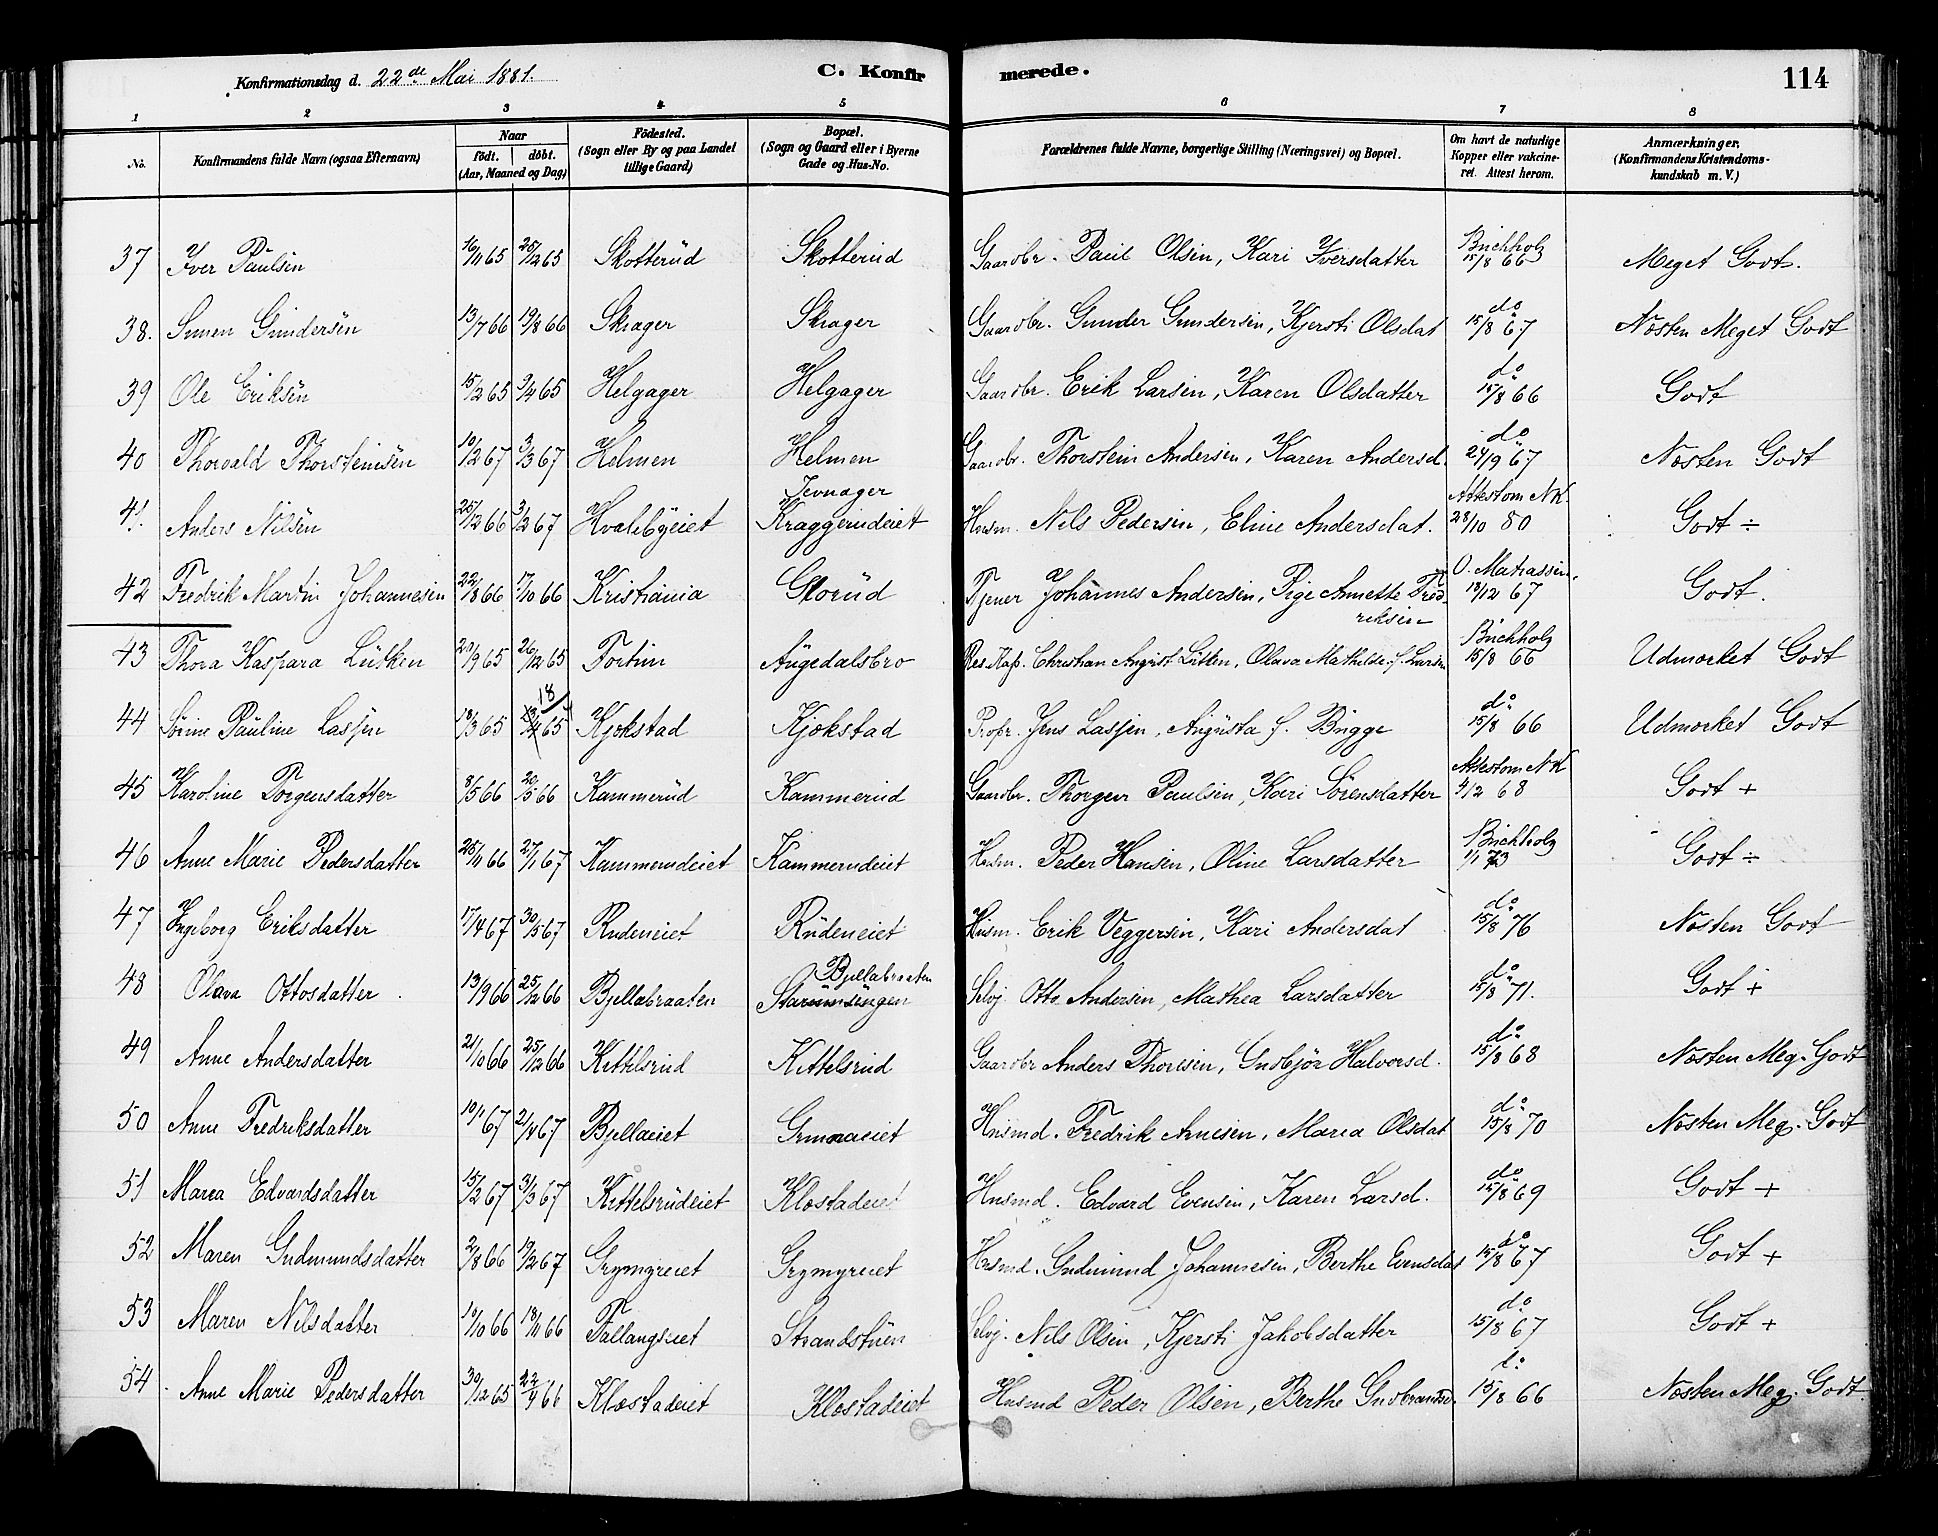 Konfirmationsdag d. 22de Mai 1881. C. Konfirmerede. 114
1 2 3 4 5 6 7 8
No. Konfirmandens fulde Navn (ogsaa Efternavn) Naar födt. döbt. (Aar, Maaned og Dag) Födested. (Sogn eller By og paa Landet tillige Gaard) Bopæl. (Sogn og Gaard eller i Byerne Gade og Hus-No. Forældrenes fulde Navne, borgerlige Stilling (Næringsvei) og Bopæl. Om havt de naturlige Kopper eller vakcineret. Attest herom. Anmærkninger. (Konfirmandens Kristendomskundskab m. V.)
37 Iver Paulsen 16/11 65 25/12 65 Skotterud Skotterud Gaardbr. Paul Olsen, Kari Iversdatter Buchholz 15/8 66 Meget Godt.
38. Simen Gundersen 13/7 66 19/8 66 Skrager Skrager Gaardbr. Gunder Gundersen, Kjersti Olsdat do 15/8 67 Næsten Meget Godt
39 Ole Eriksen 15/2 65 9/4 65 Helgager Helgager Gaardbr. Erik Larsen, Karen Olsdatter do 15/8 66 Godt
40 Thorvald Thorsteinsen 10/1 267 3/3 67 Helmen Helmen Gaardbr. Thorstein Andersen, Karen Andersd. do 24/9 67 Næsten Godt
41. Anders Nilsen 25/12 66 3/2 67 Hvalebyeiet Jevnager Kraggerudeiet Husm. Nels Pedersen, Eline Andersdat. Attest om NK 28/10 80 Godt ÷
42 Fredrik Martin Johannesen 22/8 66 17/10 66 Kristiania Glorud Tjener Johannes Andersen, Pige Annette Fredriksen O. Mathiassen. 18/12 67 Godt.
43 Thora Kaspara Lütken 20/9 65 26/12 65 Fortun Augedalsbro Res. Kap. Christian August Lütken, Olava Mathilde f. Larsen Buchholz 15/8 66 Udmærket Godt
44 Sörine Pauline Lasjen 18/3 65 18/4 65 Kjokstad Kjokstad Propr. Jens Lasjen, Augusta f. Brigge do 15/8 66 Udmærket Godt
45 Karoline Torgersdatter 8/5 66 20/5 66 Kammerud Kammerud Gaardbr. Thorger Paulsen, Kari Sörensdatter Attest om NK 4/12 68 Godt +
46 Anne Marie Pedersdatter 28/11 66 27/1 67 Kammerudeiet Kammerudeiet Husm. Peder Hansen, Oline Larsdatter Buchholz 1/1 73 Godt ÷
47 Ingeborg Eriksdatter 17/4 67 30/5 67 Rudeneiet Rudeneiet Husm. Erik Veggersen, Kari Andersdat do 15/8 76 Næsten Godt
48 Olava Ottosdatter 13/9 66 25/12 66 Bjellabraaten Bjellabraaten Selvej. Otto Andersen, Mathea Larsdatter do 15/8 71. Godt +
49 Anne Andersdatter 21/10 66 25/12 66 Kittelsrud Kittelsrud Gaardbr Anders Thoresen, Gudbjör Halvorsd. do 15/8 68 Næsten Meg. Godt
50 Anne Fredriksdatter 10/1 67 2/4 67 Bjellaeiet Grinnaeiet Husmd. Fredrik Arnesen, Marea Olsdat do 15/8 70 Næsten Meg. Godt
51 Marea Edvardsdatter 15/2 67 31/3 67 Kittelsrudeiet Klostadeiet Husmd. Edvard Evensen, Karen Larsd. do 15/8 69 Godt +
52 Maren Gudmundsdatter 2/8 66 17/2 67 Grymyreiet Grymyreiet Husmd. Gudmund Johannesen, Berthe Evensdat do 15/8 67 Godt +
53 Maren Nilsdatter 10/10 66 18/11 66 Fallangseiet Strandstuen Selvej. Nils Olsen, Kjersti Jakobsdatter do 15/8 67 Godt +
54 Anne Marie Pedersdatter 30/12 65 22/4 66 Klostadeiet Klostadeiet Husmd Peder Olsen, Berthe Gudbrandsd. do 15/8 66 Næsten Meg. Godt